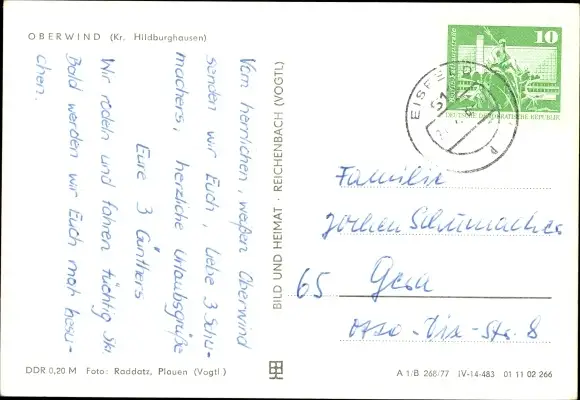 OBERWIND (Kr. Hildburghausen)
Vom herrlichen, weißen Oberwind
senden wir Euch, liebe 3 Schu-
machers, herzliche Urlaubsgrüße
Eure 3 Günthers
Wir rodeln und fahren tüchtig Ski.
Bald werden wir Euch mal besu-
chen.
BILD UND HEIMAT · REICHENBACH (VOGTL)
10
DEUTSCHE DEMOKRATISCHE REPUBLIK
EISFELD
Familie
Jochen Schumacher
65 Gera
Otto-Dix-Str. 8
DDR 0,20 M Foto: Raddatz, Plauen (Vogtl)
A 1/B 268/77 IV-14-483 01 11 02 266